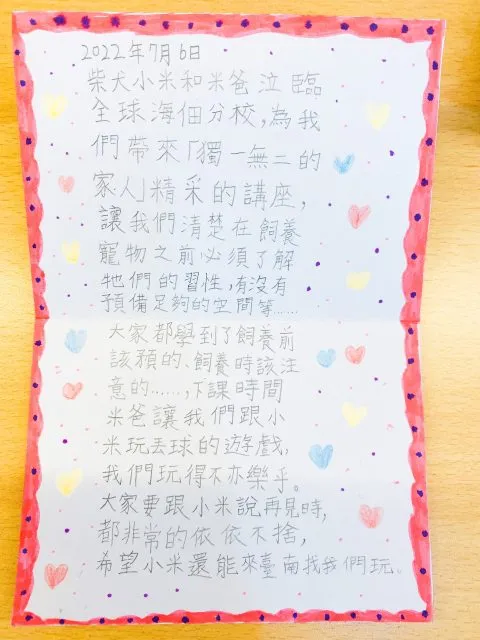 2022年7月6日
柴犬小米和米爸泣臨
全球海佃分校,為我
們帶來「獨一無二的
家人」精采的講座,
讓我們清楚在飼養
寵物之前必須了解
牠們的習性,有沒有
預備足夠的空間等……
大家都學到了飼養前
該預的、飼養時該注
意的……,下課時間
米爸讓我們跟小
米玩丟球的遊戲,
我們玩得不亦樂乎。
大家要跟小米說再見時,
都非常的依依不捨,
希望小米還能來臺南找我們玩。